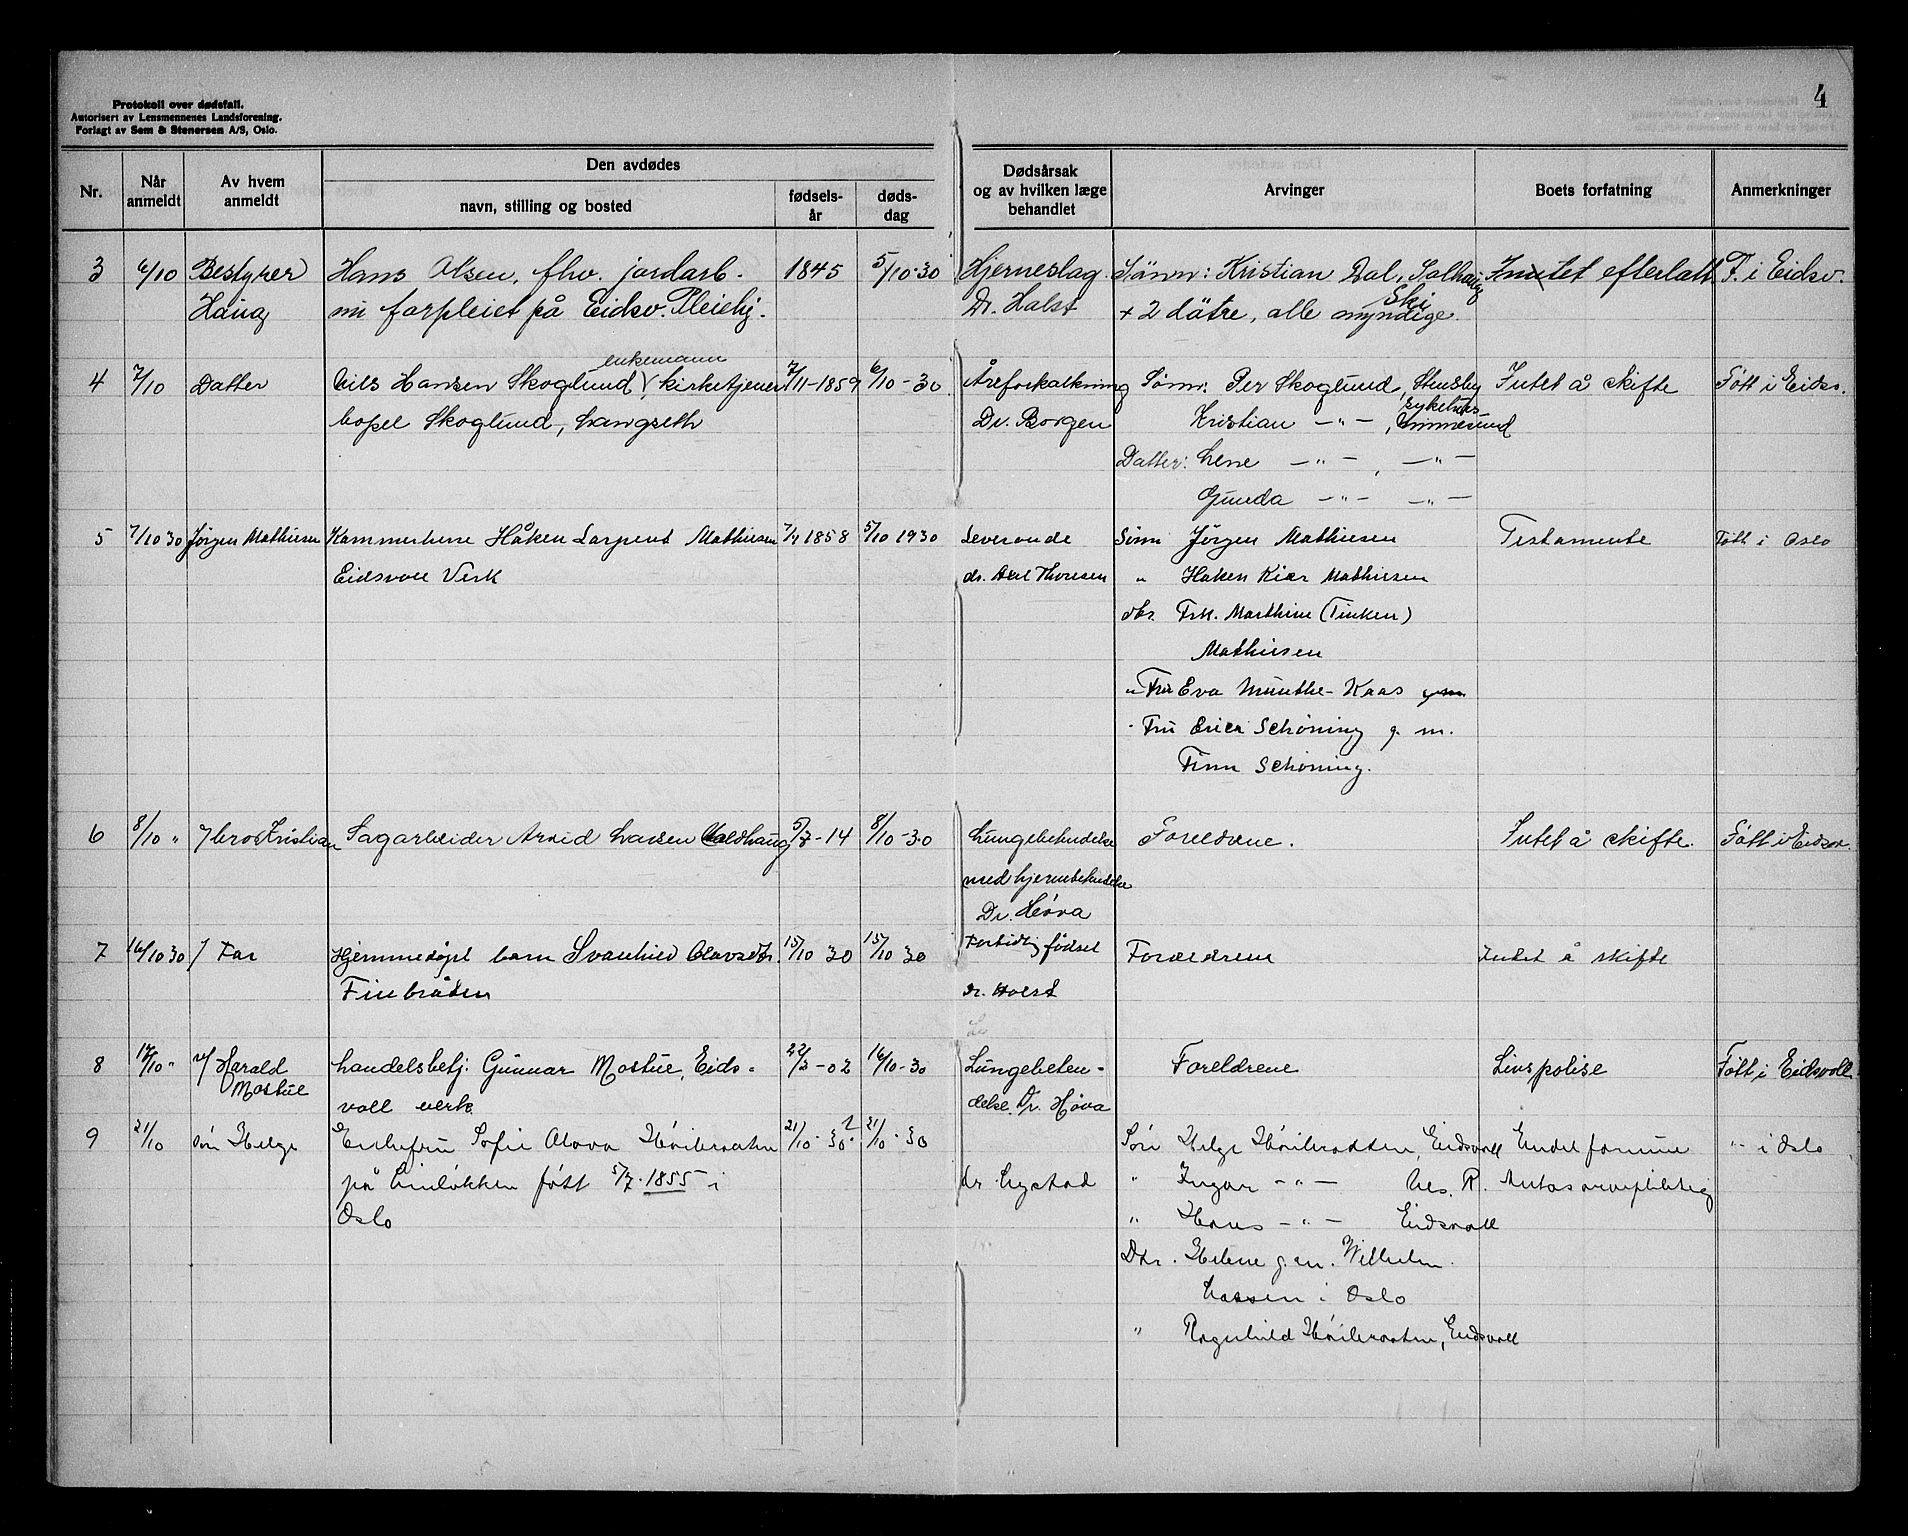 4
Protokoll over dødsfall.
Autorisert av Lensmennenes Landsforening.
Forlagt av Sem & Stenersen A/S, Oslo.
Nr.
Når anmeldt
Av hvem anmeldt
Den avdødes
navn, stilling og bosted
fødsels-år
døds-dag
Dødsårsak og av hvilken læge behandlet
Arvinger
Boets forfatning
Anmerkninger
3 6/10 Bestyrer Hans Olsen, fhv. jordarb. 1845 5/10-30 Hjerneslag. Sönn: Kristian Dal, Solhaug Intet efterlatt. F. i Eidsv.
Haug nu forpleiet på Eidsv. Pleiehj. Dr. Holst + 2 døtre, alle myndige. Ski
enkemann
4 7/10 Datter Nils Hansen Skoglund, kirketjener 7/11-1859 6/10-30. Åreforkalkning Sönn: Per Skoglund, Stensby Intet å skifte Fött i Eidsv.
bopel Skoglund, Langseth Dr. Borgen Kristian -"-, sykehus
Datter: Lene -"-, -"-
Gunda -"- -"-
5 7/10 30 Jørgen Mathiesen Kammerherre Håken Larpent Mathiesen 7/4 1858 5/10 1930 Leveronde Sönn Jörgen Mathiesen Testamente Født i Oslo
Eidsvoll Verk dr. Axel Thoresen " Haken Kiær Mathiesen
dtr. Frk. Marthine (Tinken)
Mathiesen
" Fru Eva Munthe-Kaas
" Fru Erica Schöning g. m.
Finn Schöning.
6 8/10 " / bror Kristian Sagarbeider Arvid Larsen 5/7-14 8/10-30 Lungebetendelse Foreldrene. Intet å skifte. Født i Eidsv.
med hjernebetendelse
Dr. Høva
7 16/10 30 / Far Hjemmedøpt barn Svanhild Olavsdtr. 15/10 30 15/10 30 Fortidlig födsel Foreldrene Intet å skifte
Finbråten dr. Holst
8 17/10 " v/ Harald Handelsbetj. Gunnar Mostue, Eids- 22/3-02 16/10-30 Lungebeten- Foreldrene Livspolise Født i Eidsvoll
Mostue voll verk delse. Dr. Høva
9 21/10 sön Helge Enkefru Sofie Olava Höibraaten 21/10-30 ? 21/10-30 Sön Helge Höibraaten, Eidsvoll Endel formue " i Oslo
på födt 5/7-1855 i dr. Lystad " Ingvar -"- Nes. R. Antas arvepliktig
Oslo " Hans -"- Eidsvoll
Dtr. Helene g. m. Wilhelm
Larsen i Oslo
" Ragnhild Höibraaten, Eidsvoll